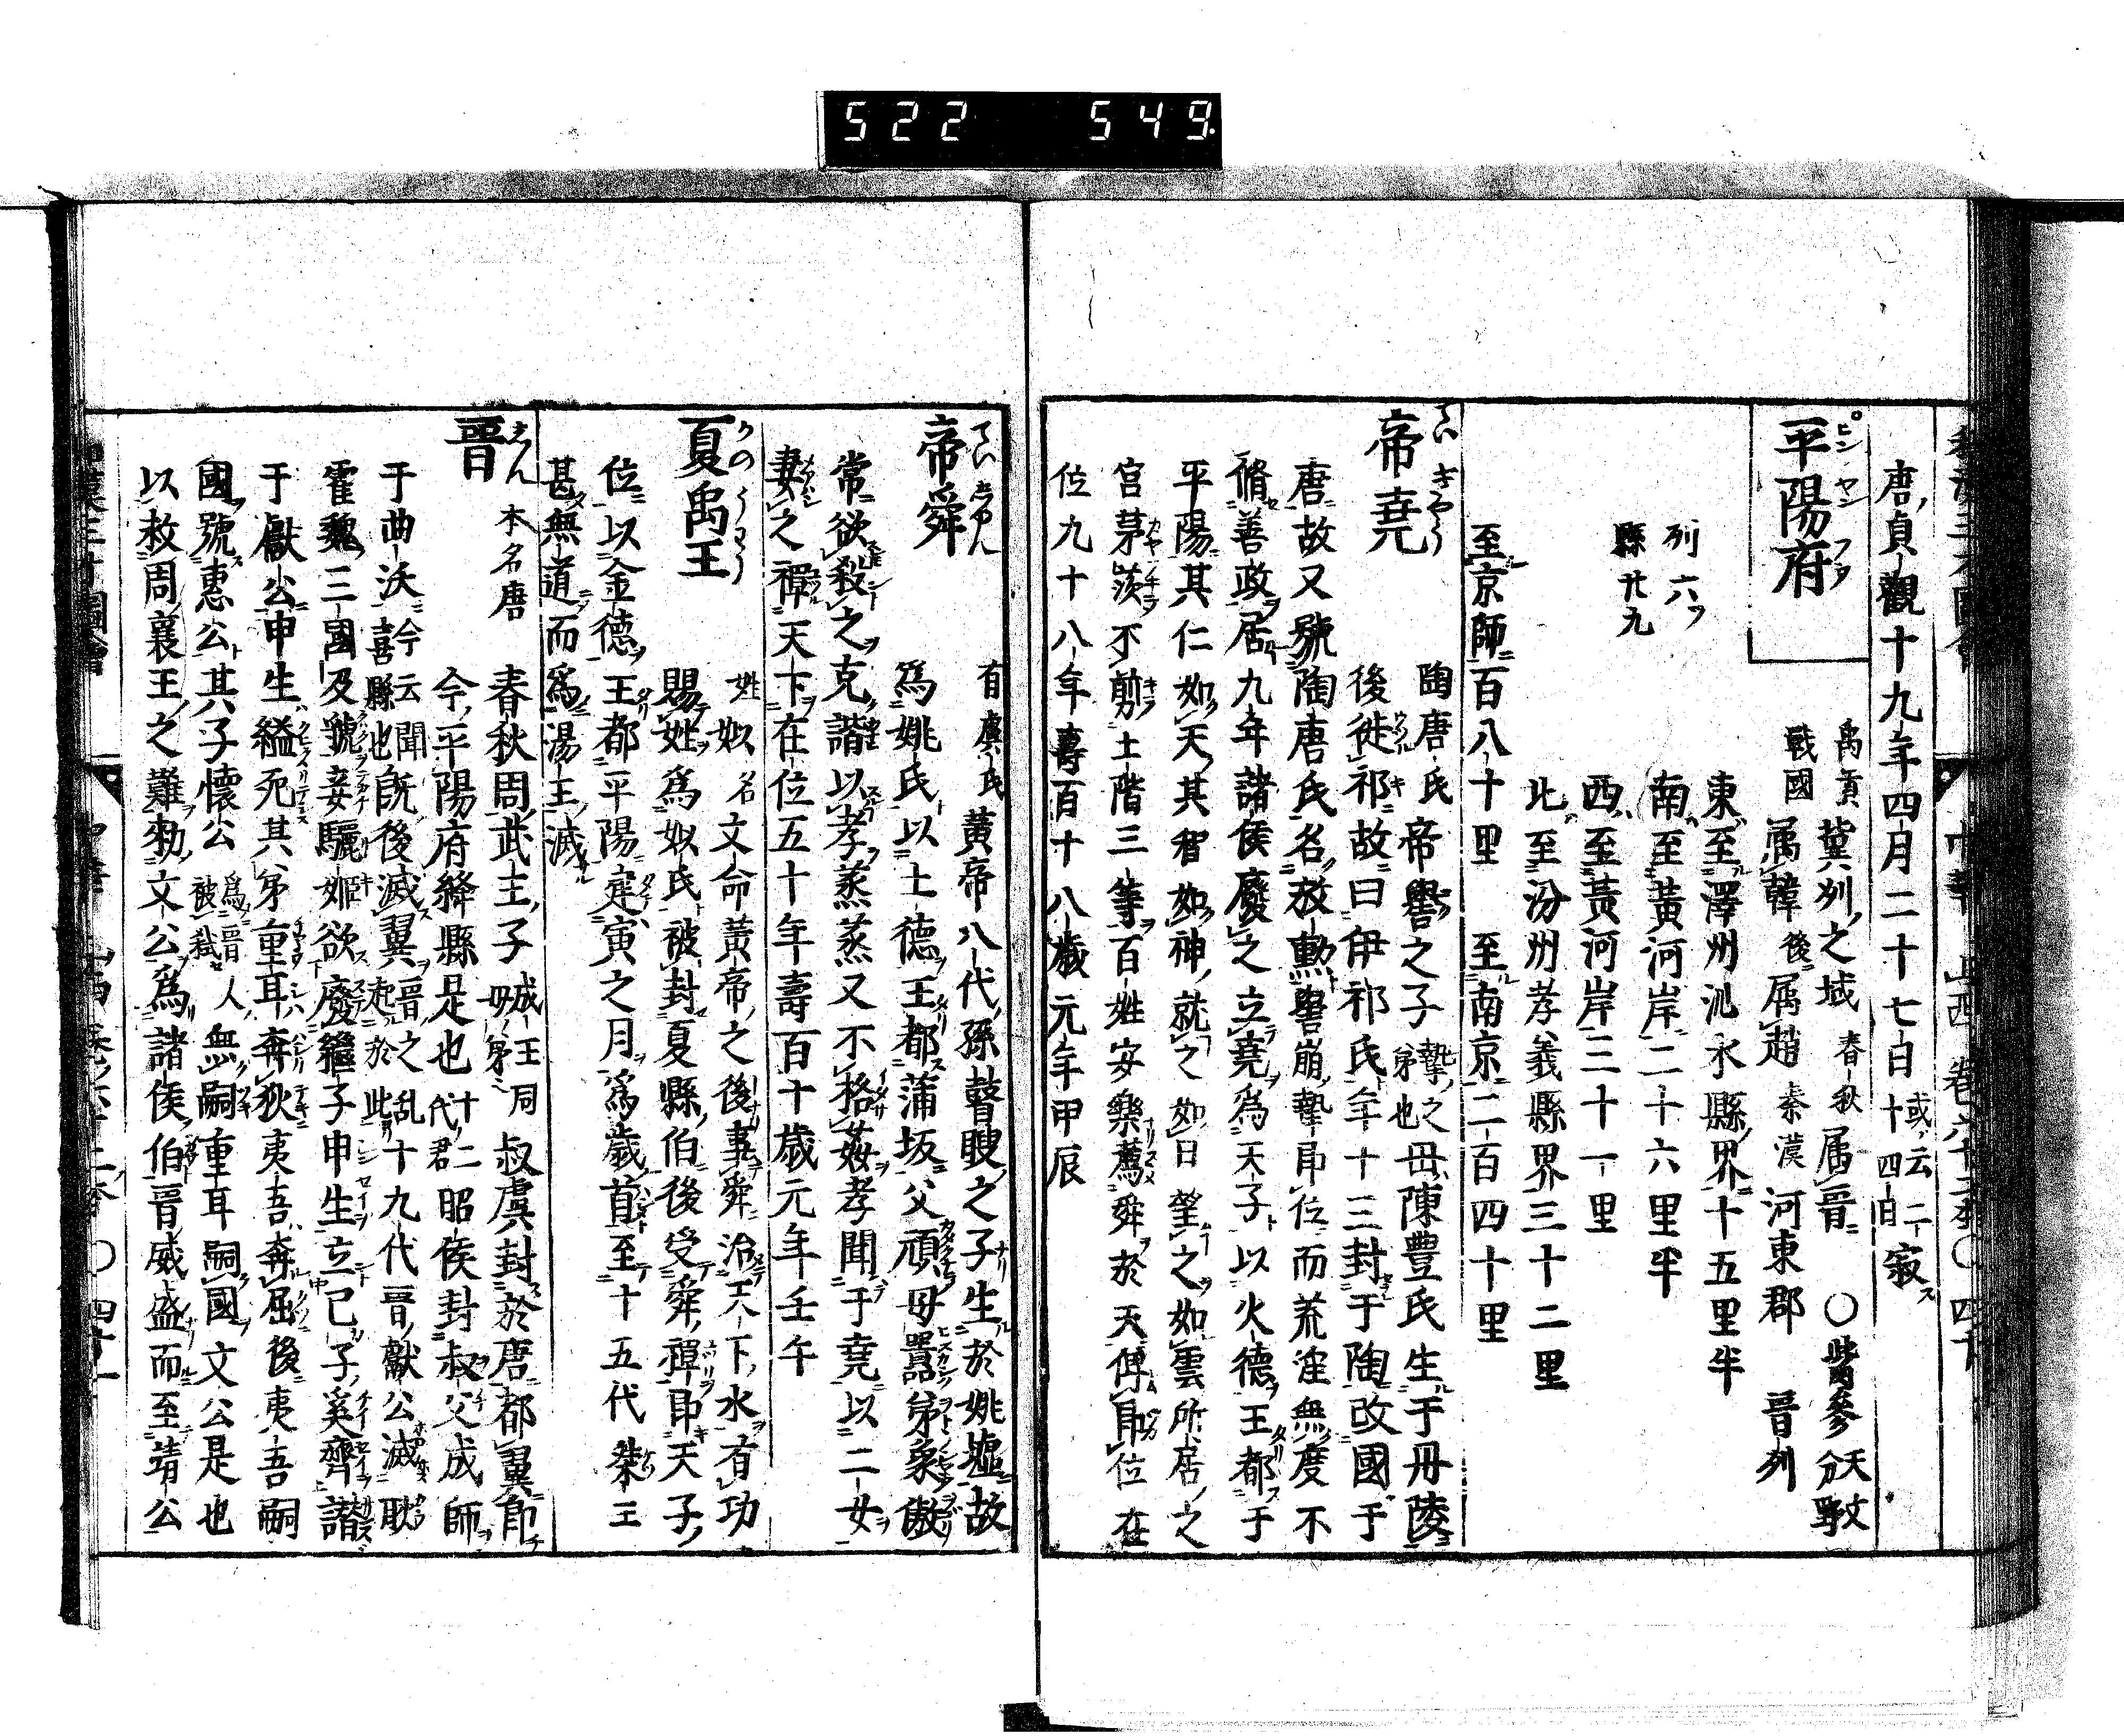 522 549
唐貞觀十九年四月二十七日或云二十四日寂ス
平陽府 ピンヤンフウ
禹貢冀州之域春秋属晋 ○觜參天文分野
戰國属韓後属趙秦漢河東郡 晋州
東至澤州沁水縣界十五里半
州六 南至黃河岸二十六里半
縣廿九 西至黃河岸三十一里
北至汾州孝義縣界三十二里
至京師百八十里 至南京二百四十里
帝堯 ていぎやう
陶唐氏帝嚳之子摯之弟也母陳豊氏生于丹陵
後徙祁故曰伊祁氏年十三封于陶改國于
唐故又號陶唐氏名放勳嚳崩摯即位而荒淫無度不
脩善政居九年諸侯廢之立堯為天子以火德王都于
平陽其仁如天其智如神就之如日望之如雲所居之
宮茅茨不剪土階三等百姓安樂薦舜於天傳即位在
位九十八年壽百十八歲元年甲辰
帝舜 ていしゆん
有虞氏黃帝八代孫瞽瞍之子生於姚墟故
為姚氏以土德王都蒲坂父頑母嚚弟象傲
常欲殺之克諧以孝烝烝又不格姦孝聞于堯以二女
妻之禪天下在位五十年壽百十歲元年壬午
夏禹王 かのうわう
姓姒名文命黃帝之後事舜治天下水有功
賜姓為姒氏被封夏縣伯後受舜禪即天子
位以金德王都平陽建寅之月為歲首至十五代桀王
甚無道而為湯王滅
晋 しん
本名唐 春秋周武王子成王同母弟叔虞封於唐都翼即
今平陽府絳縣是也十二代君昭侯封叔父成師
于曲沃今云聞喜縣也既後滅翼晋之乱起於此十九代晋獻公滅耿
霍魏三國及虢妾驪姬欲廢繼子申生立己子奚齊譖
于獻公申生縊死其弟重耳奔狄夷吾奔屈後夷吾嗣
國號惠公其子懷公為晋人被弒無嗣重耳嗣國文公是也
以救周襄王之難勑文公為諸侯伯晋威盛而至靖公